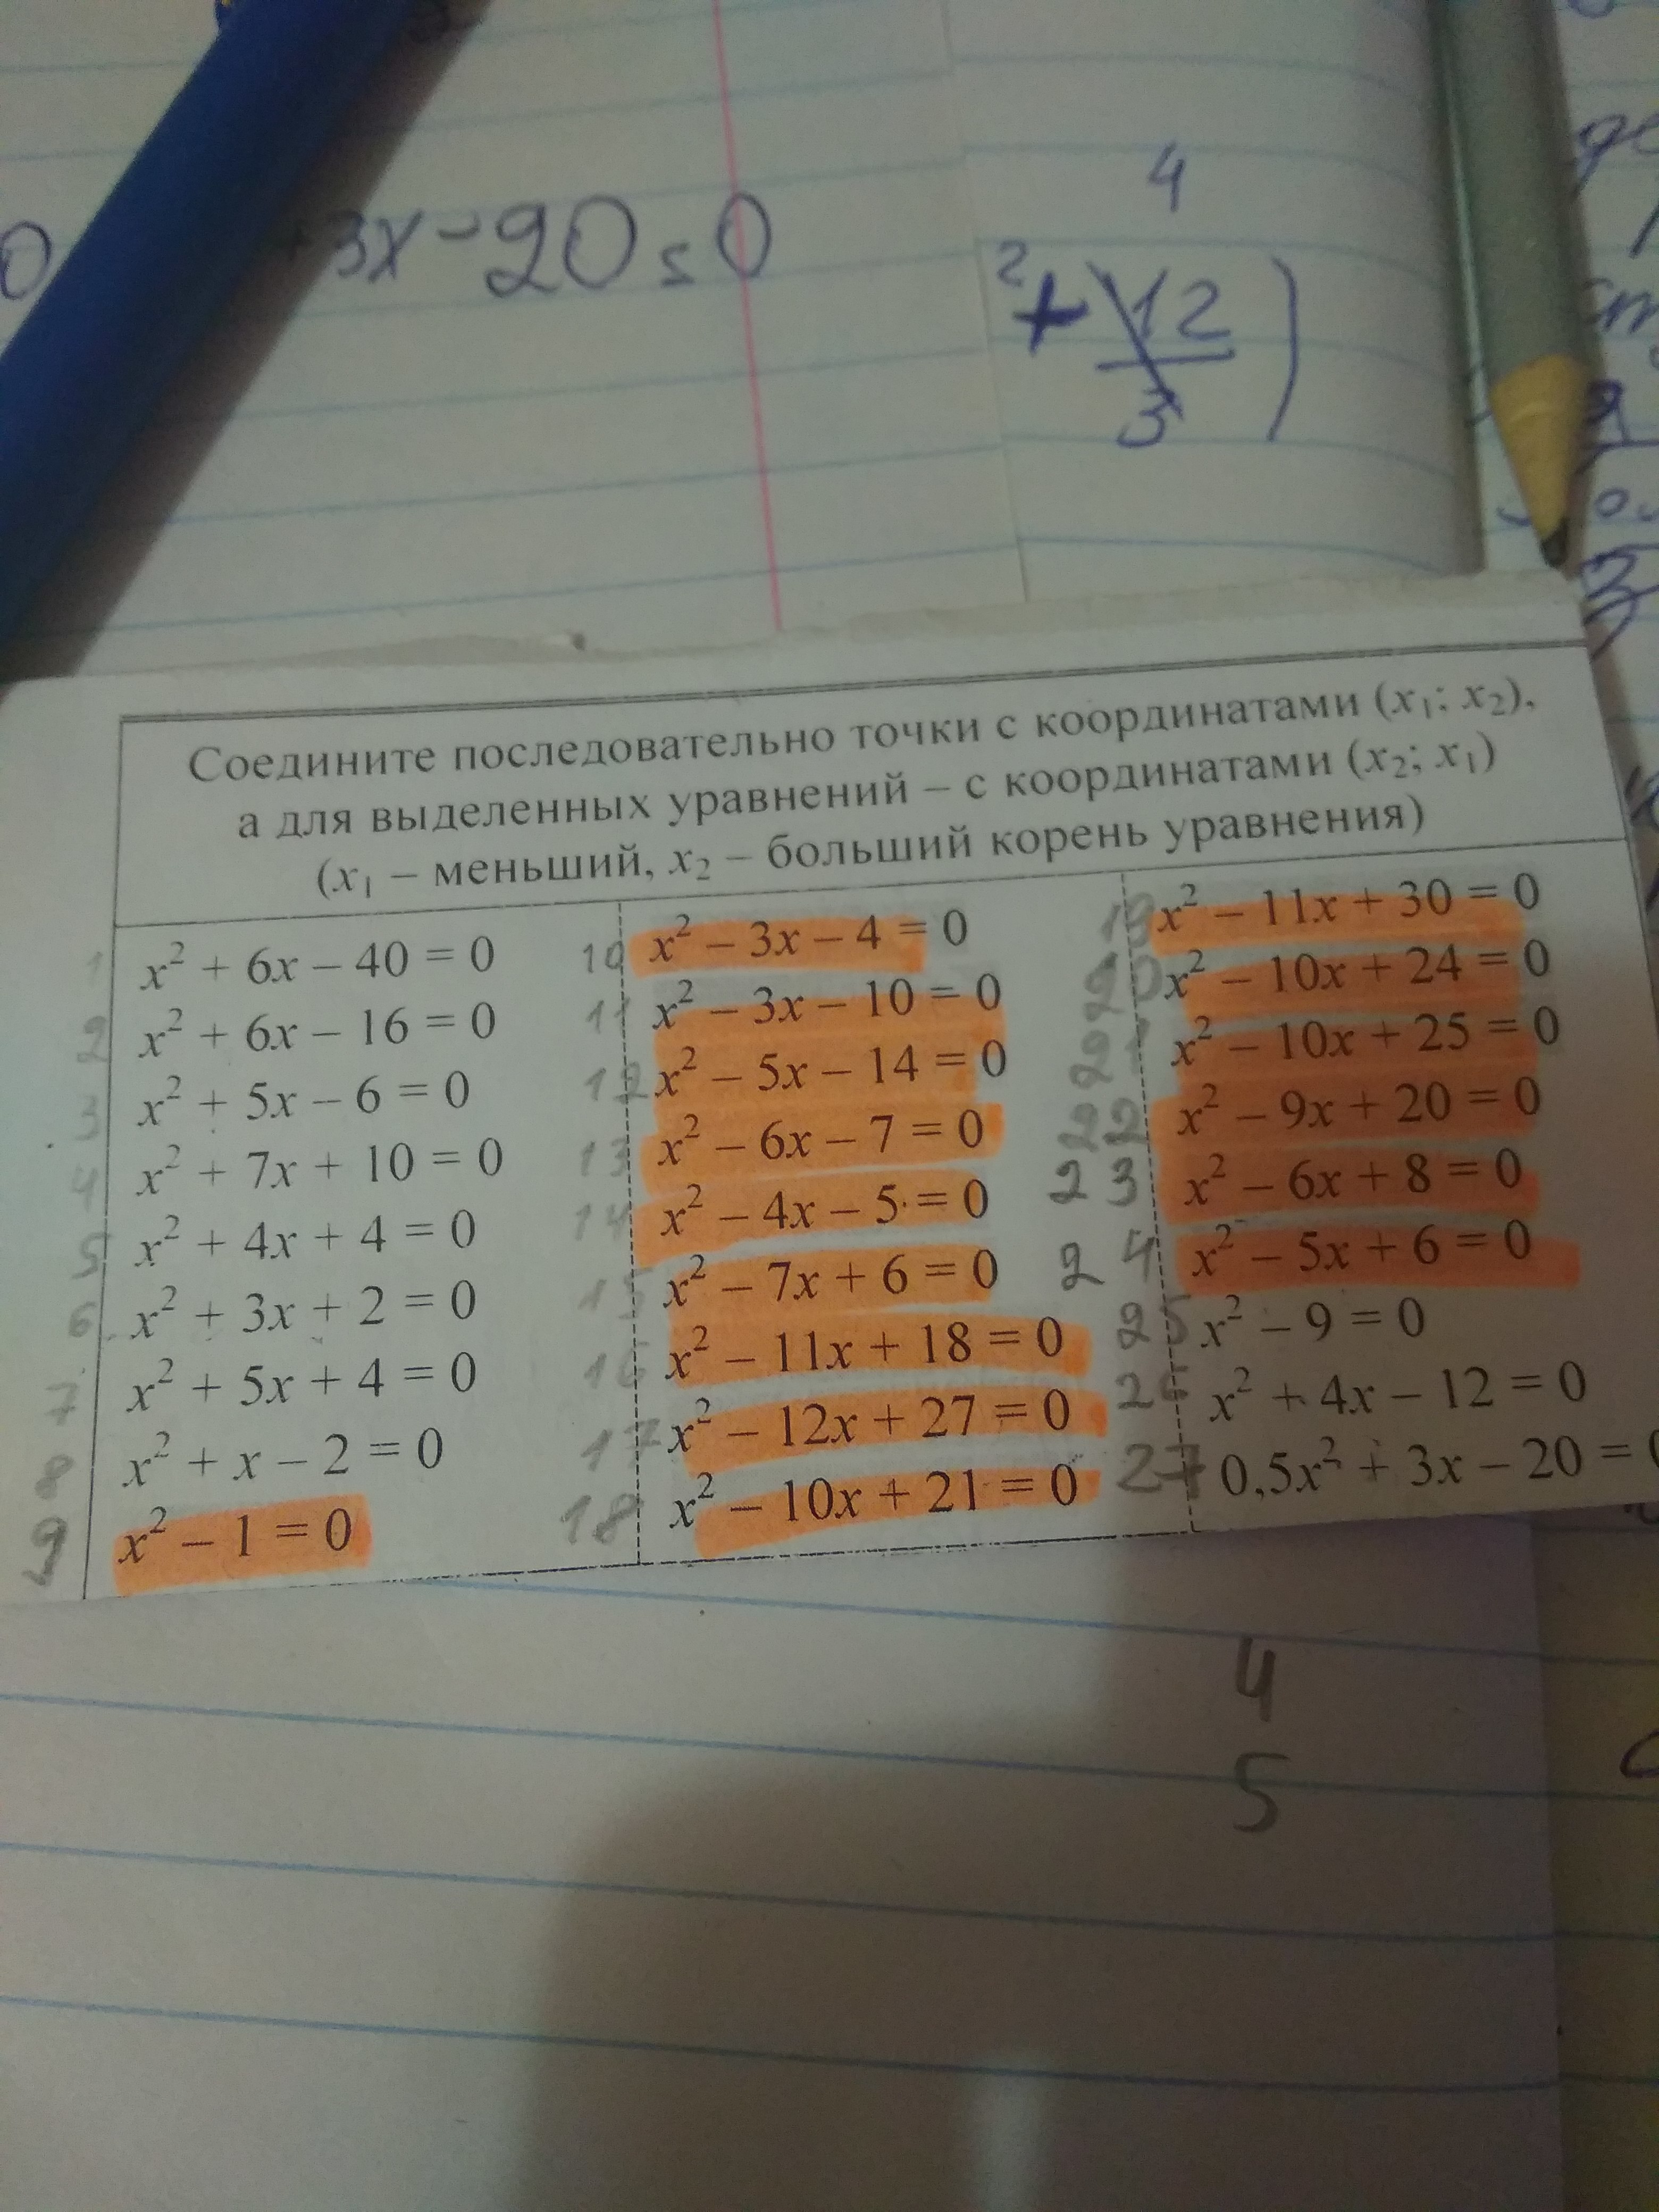 +3x-20=0
4
2
+ 12
3
)
Соедините последовательно точки с координатами (x₁; x₂),
а для выделенных уравнений – с координатами (x₂; x₁)
(x₁ – меньший, x₂ – больший корень уравнения)
1 x² + 6x – 40 = 0
2 x² + 6x – 16 = 0
3 x² + 5x – 6 = 0
4 x² + 7x + 10 = 0
5 x² + 4x + 4 = 0
6 x² + 3x + 2 = 0
7 x² + 5x + 4 = 0
8 x² + x – 2 = 0
9 x² – 1 = 0
10 x² – 3x – 4 = 0
11 x² – 3x – 10 = 0
12 x² – 5x – 14 = 0
13 x² – 6x – 7 = 0
14 x² – 4x – 5 = 0
15 x² – 7x + 6 = 0
16 x² – 11x + 18 = 0
17 x² – 12x + 27 = 0
18 x² – 10x + 21 = 0
19 x² – 11x + 30 = 0
20 x² – 10x + 24 = 0
21 x² – 10x + 25 = 0
22 x² – 9x + 20 = 0
23 x² – 6x + 8 = 0
24 x² – 5x + 6 = 0
25 x² – 9 = 0
26 x² + 4x – 12 = 0
27 0,5x² + 3x – 20 = 0
4
5